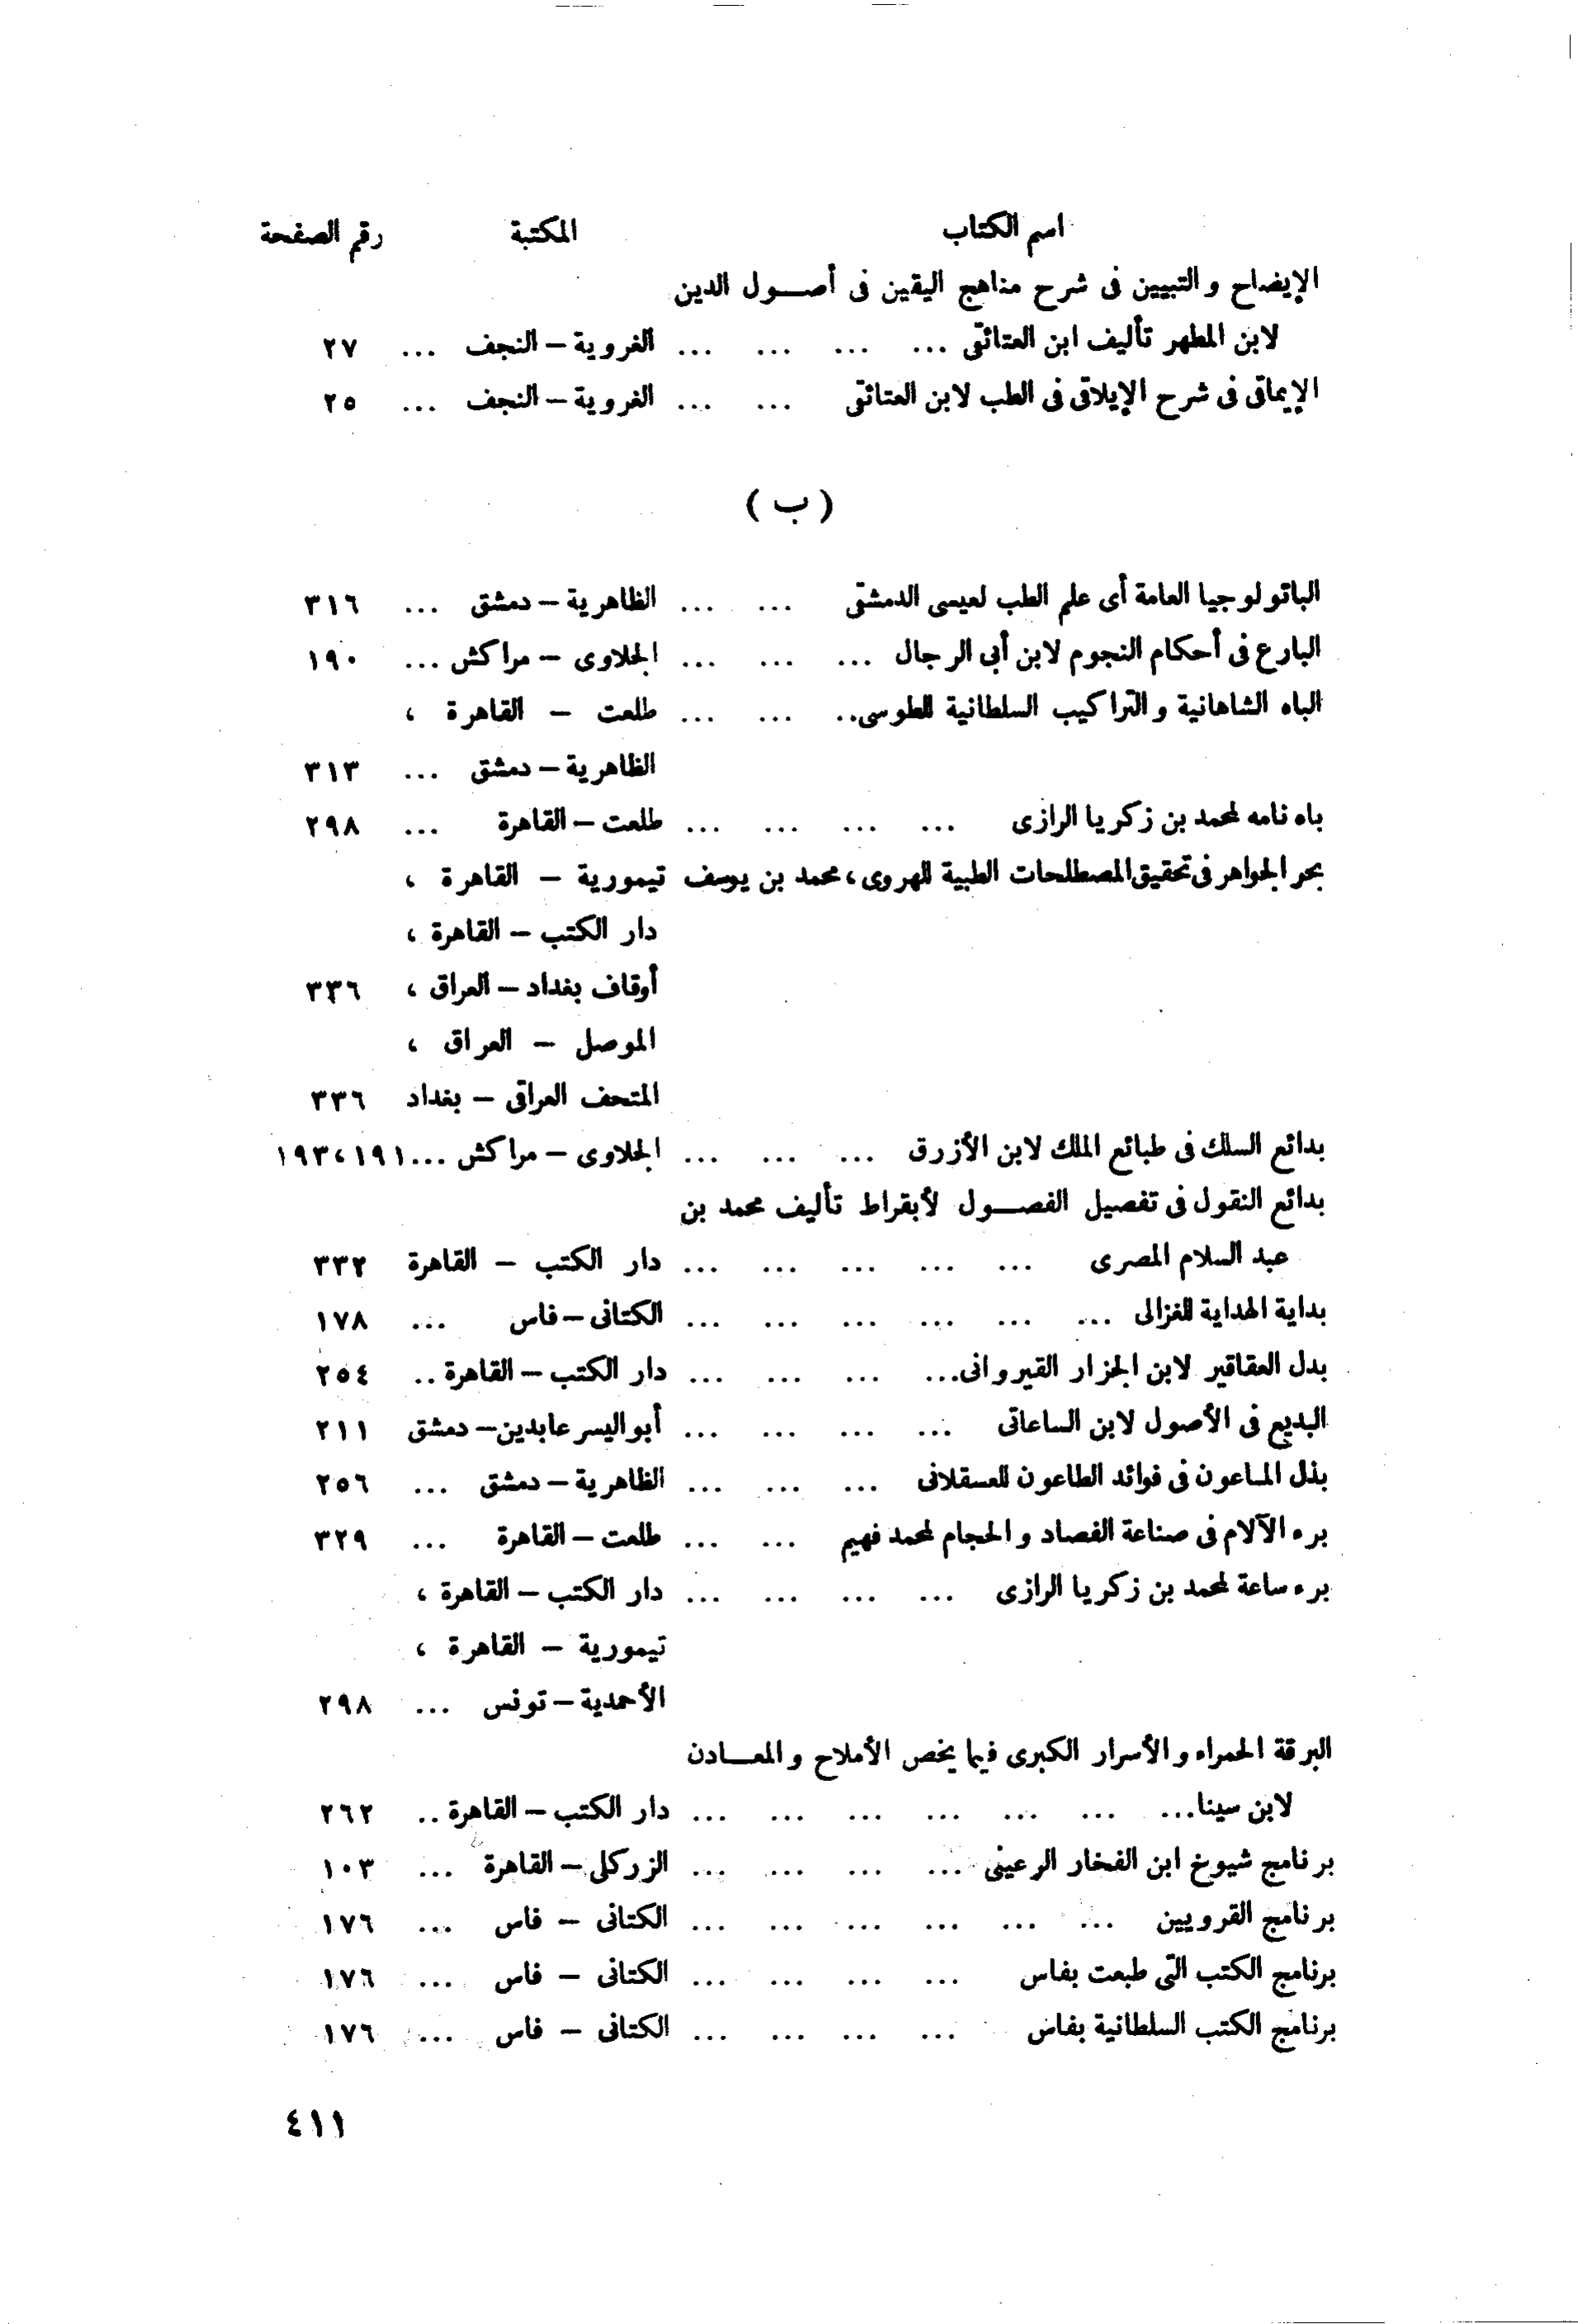 اسم الكتاب المكتبة رقم الصفحة
الإيضاح والتبيين فى شرح مناهج اليقين فى أصــول الدين
لابن المطهر تأليف ابن العتائقى ... ... ... ... الغروية – النجف ... ٢٧
الإيماقى فى شرح الإيلاقى فى الطب لابن العتائقى ... ... الغروية – النجف ... ٢٥
( ب )
الباتولوجيا العامة أى علم الطب لعيسى الدمشقى ... ... الظاهرية – دمشق ... ٣١٦
البارع فى أحكام النجوم لابن أبى الرجال ... ... ... الجلاوى – مراكش ... ١٩٠
الباه الشاهانية والتراكيب السلطانية للطوسى.. ... ... طلعت – القاهرة ،
الظاهرية – دمشق ... ٣١٣
باه نامه لمحمد بن زكريا الرازى ... ... ... ... طلعت – القاهرة ... ٢٩٨
بحر الجواهر فى تحقيق المصطلحات الطبية للهروى، محمد بن يوسف تيمورية – القاهرة ،
دار الكتب – القاهرة ،
أوقاف بغداد – العراق ، ٣٣٦
الموصل – العراق ،
المتحف العراقى – بغداد ٣٣٦
بدائع السلك فى طبائع الملك لابن الأزرق ... ... ... الجلاوى – مراكش ...١٩١، ١٩٣
بدائع النقول فى تفصيل الفصــول لأبقراط تأليف محمد بن
عبد السلام المصرى ... ... ... ... ... دار الكتب – القاهرة ٣٣٢
بداية الهداية للغزالى ... ... ... ... ... ... الكتانى – فاس ... ١٧٨
بدل العقاقير لابن الجزار القيروانى... ... ... ... دار الكتب – القاهرة .. ٢٥٤
البديع فى الأصول لابن الساعاتى ... ... ... ... أبو اليسر عابدين – دمشق ٢١١
بذل الماعون فى فوائد الطاعون للعسقلانى ... ... ... الظاهرية – دمشق ... ٢٥٦
برء الآلام فى صناعة الفصاد والحجام لمحمد فهيم ... ... طلعت – القاهرة ... ٣٢٩
برء ساعة لمحمد بن زكريا الرازى ... ... ... ... دار الكتب – القاهرة ،
تيمورية – القاهرة ،
الأحمدية – تونس ... ٢٩٨
البرقة الحمراء والأسرار الكبرى فيما يخص الأملاح والمعــادن
لابن سينا... ... ... ... ... ... ... دار الكتب – القاهرة .. ٢٦٢
برنامج شيوخ ابن الفخار الرعينى ... ... ... ... الزركلى – القاهرة ... ١٠٣
برنامج القرويين ... ... ... ... ... ... الكتانى – فاس ... ١٧٦
برنامج الكتب التى طبعت بفاس ... ... ... ... الكتانى – فاس ... ١٧٦
برنامج الكتب السلطانية بفاس ... ... ... ... الكتانى – فاس ... ١٧٦
٤١١